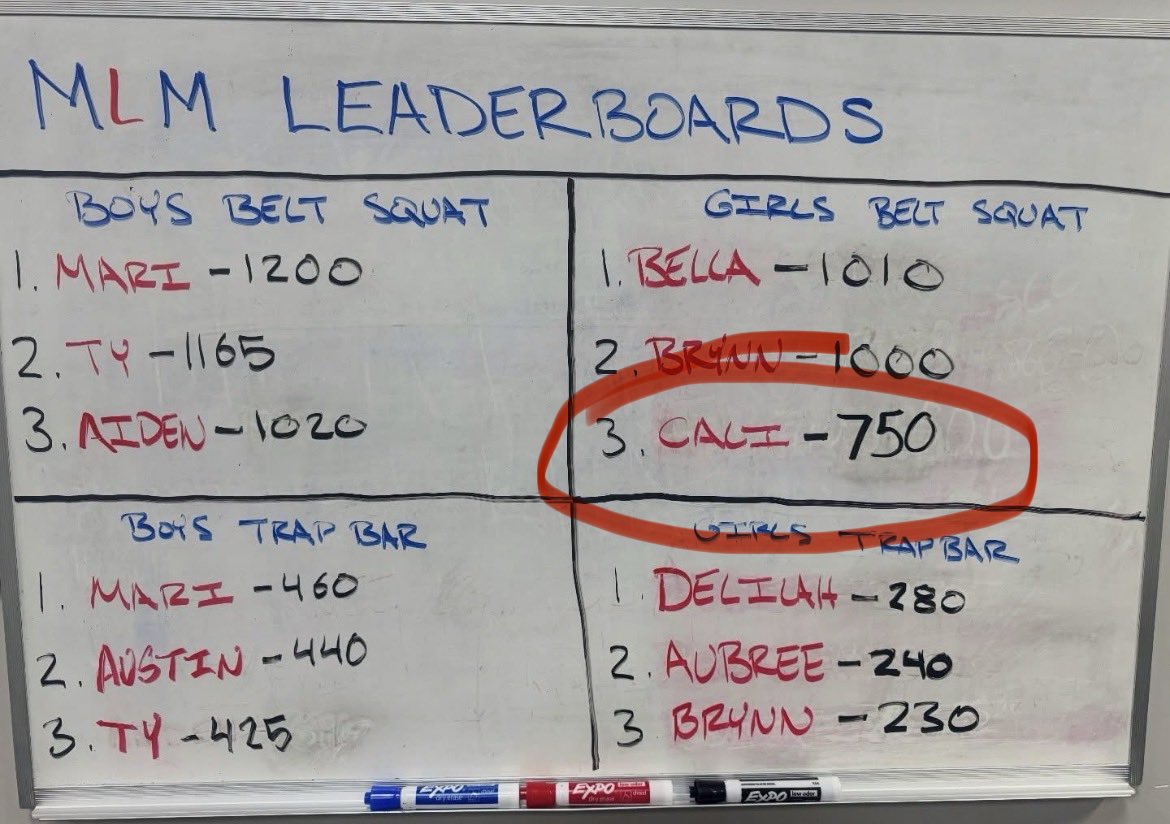 MLM LEADERBOARDS
BOYS BELT SQUAT
1. MARI - 1200
2. TY - 1165
3. AIDEN - 1020
GIRLS BELT SQUAT
1. BELLA - 1010
2. BRYNN - 1000
3. CALI - 750
BOYS TRAP BAR
1. MARI - 460
2. AUSTIN - 440
3. TY - 425
GIRLS TRAP BAR
1. DELILAH - 280
2. AUBREE - 240
3 BRYNN - 230
EXPO dry erase
EXPO low odor dry erase
EXPO low odor